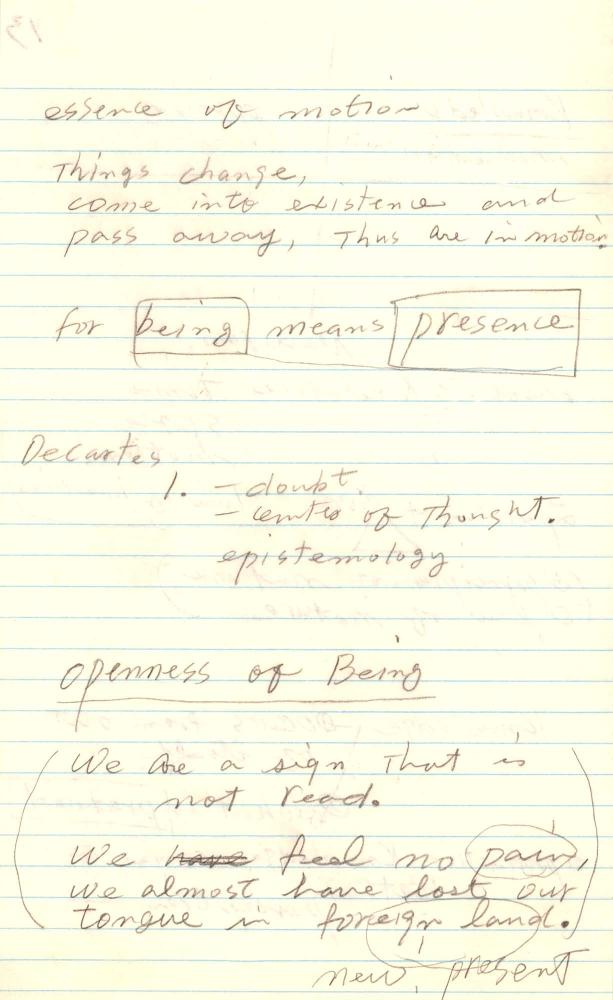 13
essence of motion
Things change,
come into existence and
pass away, Thus are in motion.
for being means presence
Decartes
1. – doubt.
– center of Thought.
epistemology
openness of Being
(We are a sign that is
not read.
We have feel no pain,
we almost have lost our
tongue in foreign land.)
new, present